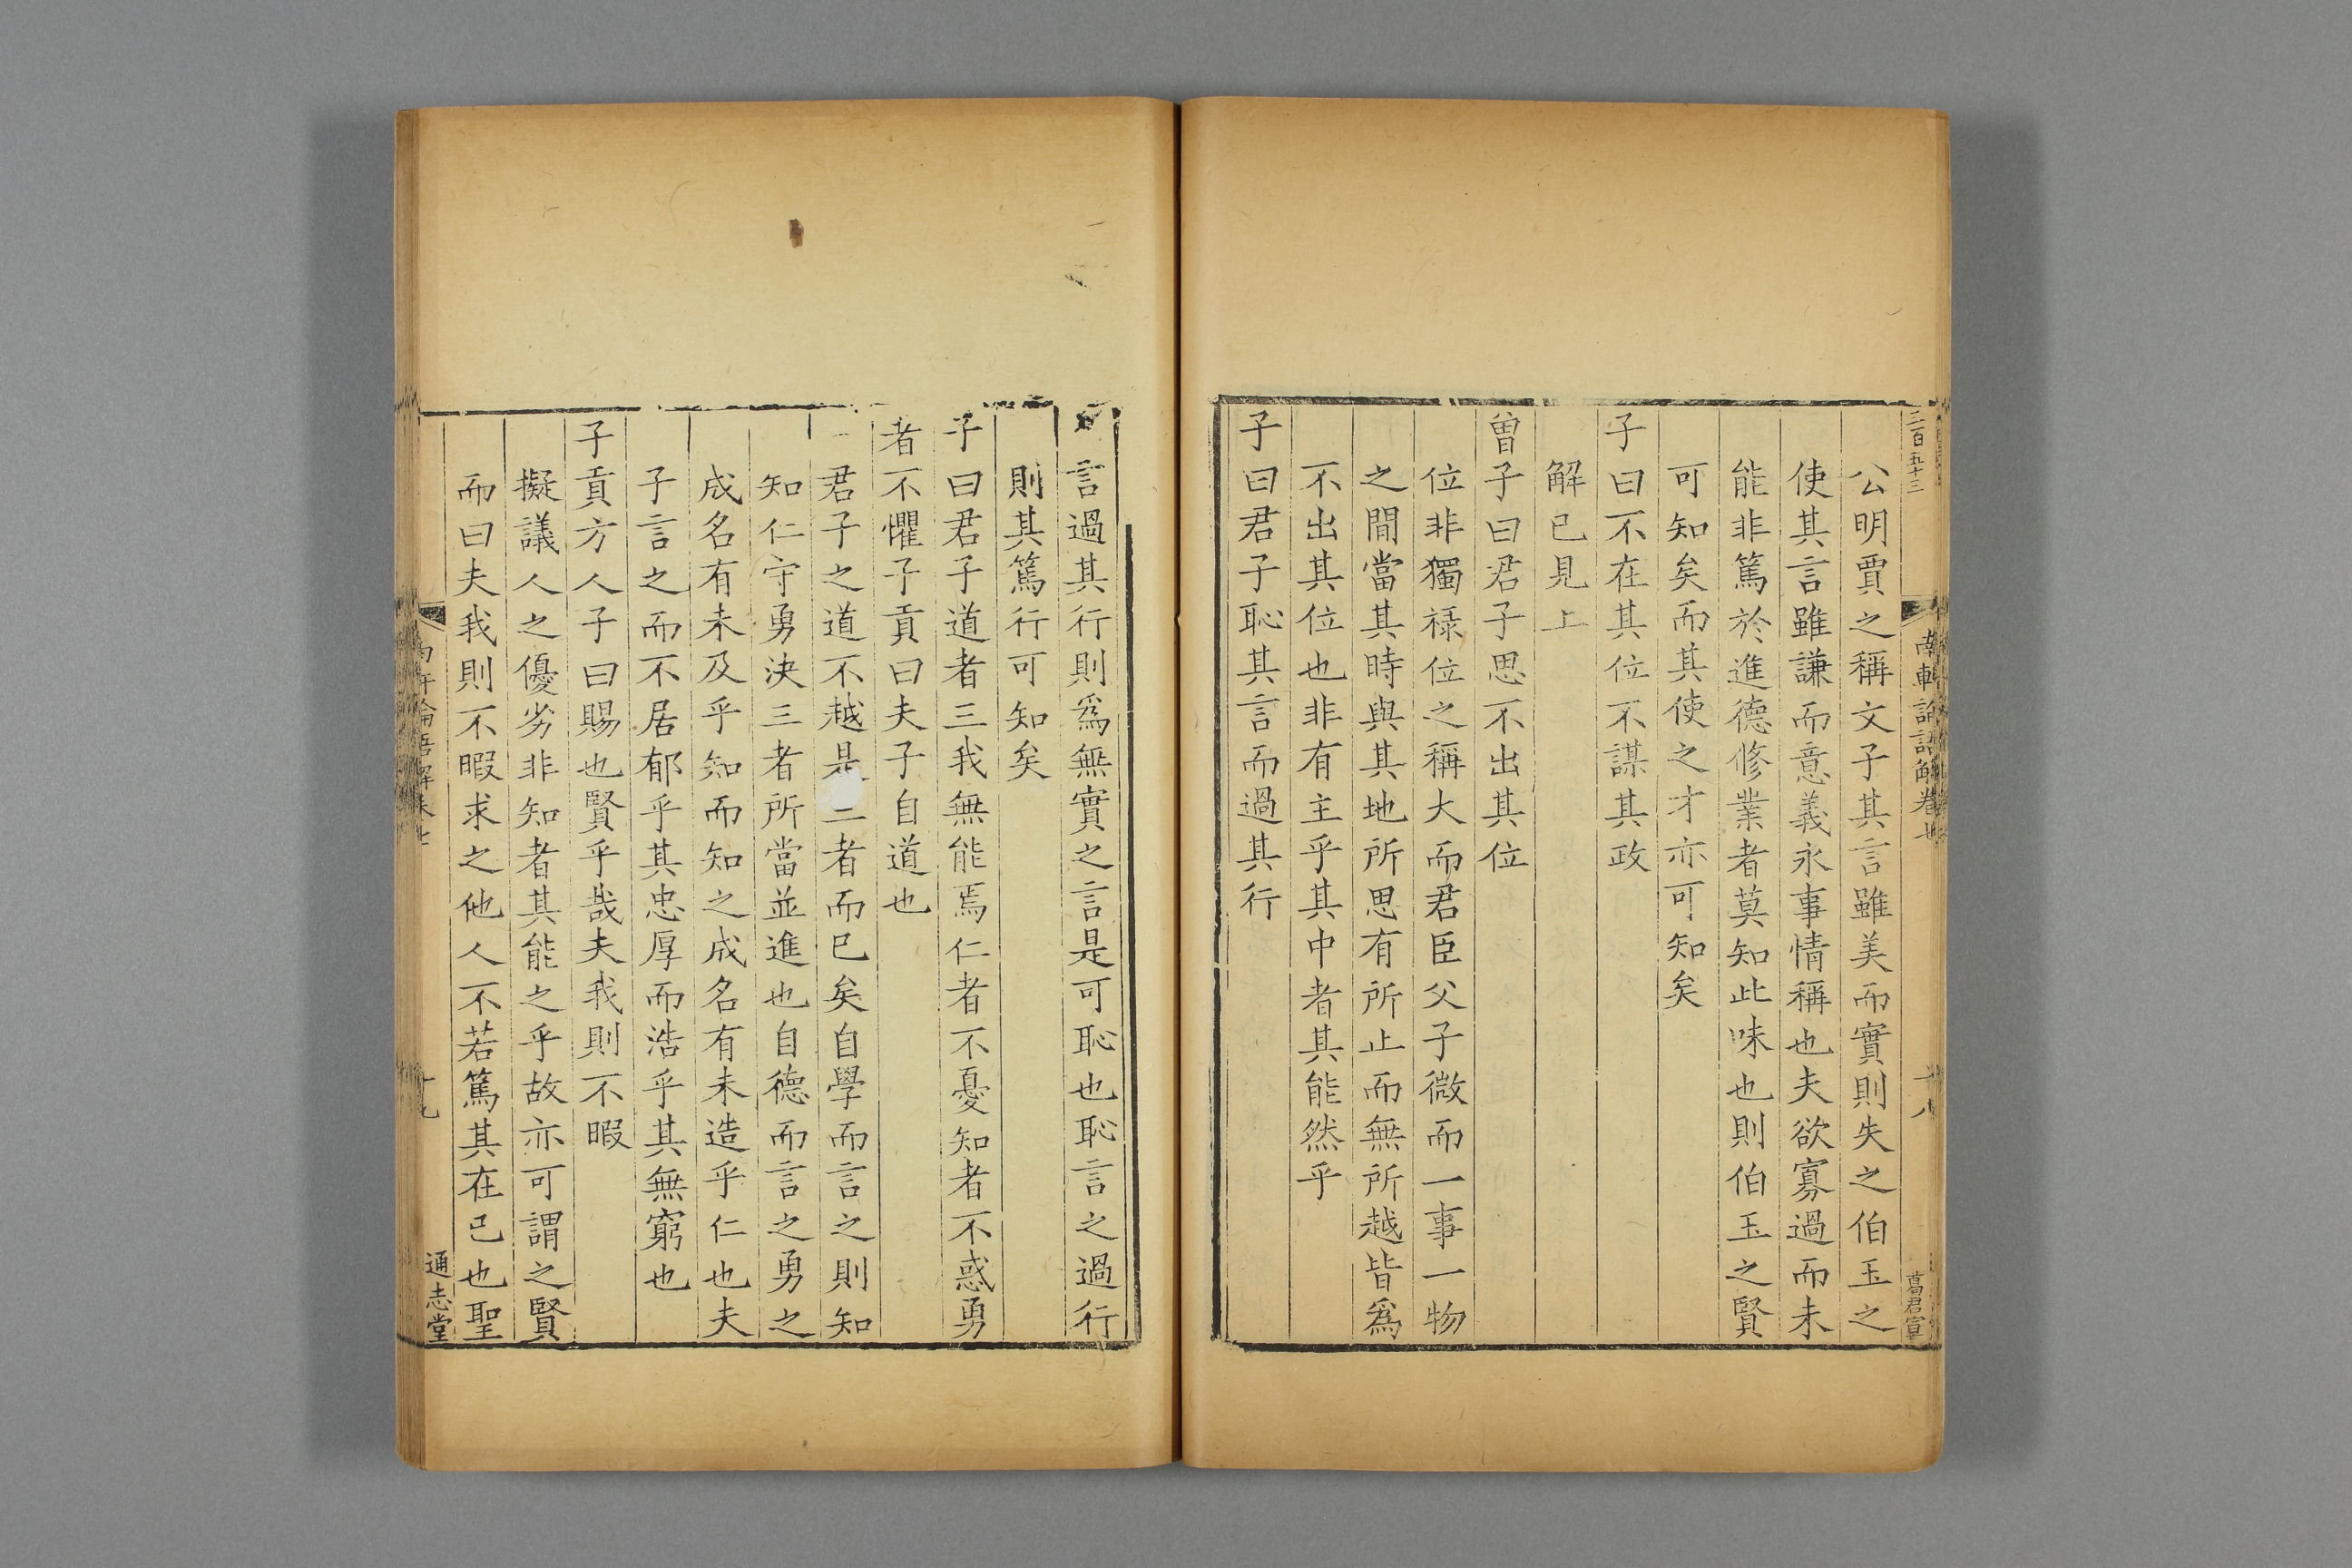 三百五十三
南軒論語解卷七
十八
葛君宣
公明賈之稱文子其言雖美而實則失之伯玉之
使其言雖謙而意義永事情稱也夫欲寡過而未
能非篤於進德修業者莫知此味也則伯玉之賢
可知矣而其使之才亦可知矣
子曰不在其位不謀其政
解已見上
曾子曰君子思不出其位
位非獨祿位之稱大而君臣父子微而一事一物
之間當其時與其地所思有所止而無所越皆爲
不出其位也非有主乎其中者其能然乎
子曰君子恥其言而過其行
言過其行則爲無實之言是可恥也恥言之過行
則其篤行可知矣
子曰君子道者三我無能焉仁者不憂知者不惑勇
者不懼子貢曰夫子自道也
君子之道不越是三者而已矣自學而言之則知
知仁守勇決三者所當並進也自德而言之勇之
成名有未及乎知而知之成名有未造乎仁也夫
子言之而不居郁乎其忠厚而浩乎其無窮也
子貢方人子曰賜也賢乎哉夫我則不暇
擬議人之優劣非知者其能之乎故亦可謂之賢
而曰夫我則不暇求之他人不若篤其在己也聖
論語解卷七
十九
通志堂